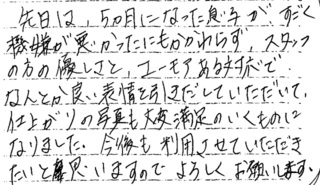 先日は、5ヵ月になった息子が、すごく
機嫌が悪かったにもかかわらず、スタッフ
の方の優しさと、ユーモアある対応で
なんとか良い表情を引きだしていただいて、
仕上がりの写真も大変満足のいくものに
なりました。今後も利用させていただき
たいと思いますので よろしくお願いします。